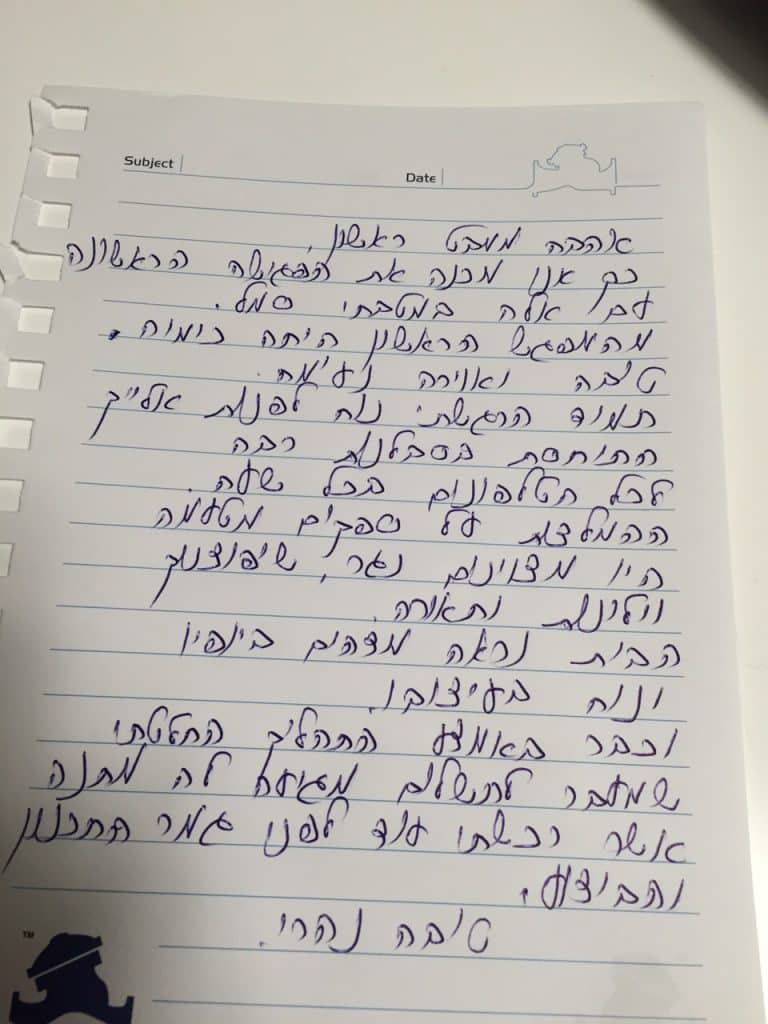 Subject
Date
אהבה ממבט ראשון,
כך אני מכנה את הפגישה הראשונה
עם אלה במטבחי סמל.
מהמפגש הראשון היתה כימיה,
טיבה ואוירה נעימה.
תמיד הרגשתי נוח לפנות אלייך
התיחסת בסבלנות רבה
לכל הטלפונים בכל שעה.
ההמלצות על ספקים מטעמה
היו מצוינים נגר, שיפוצניק
וילונות ותאורה.
הבית נראה מדהים ביופיו
ונוח בעיצובו.
וכבר באמצע התהליך החלטתי
שמעבר לתשלום מגיעה לה מתנה
אשר רכשתי עוד לפני גמר התכנון
והביצוע.
טיבה נהרי.
TM